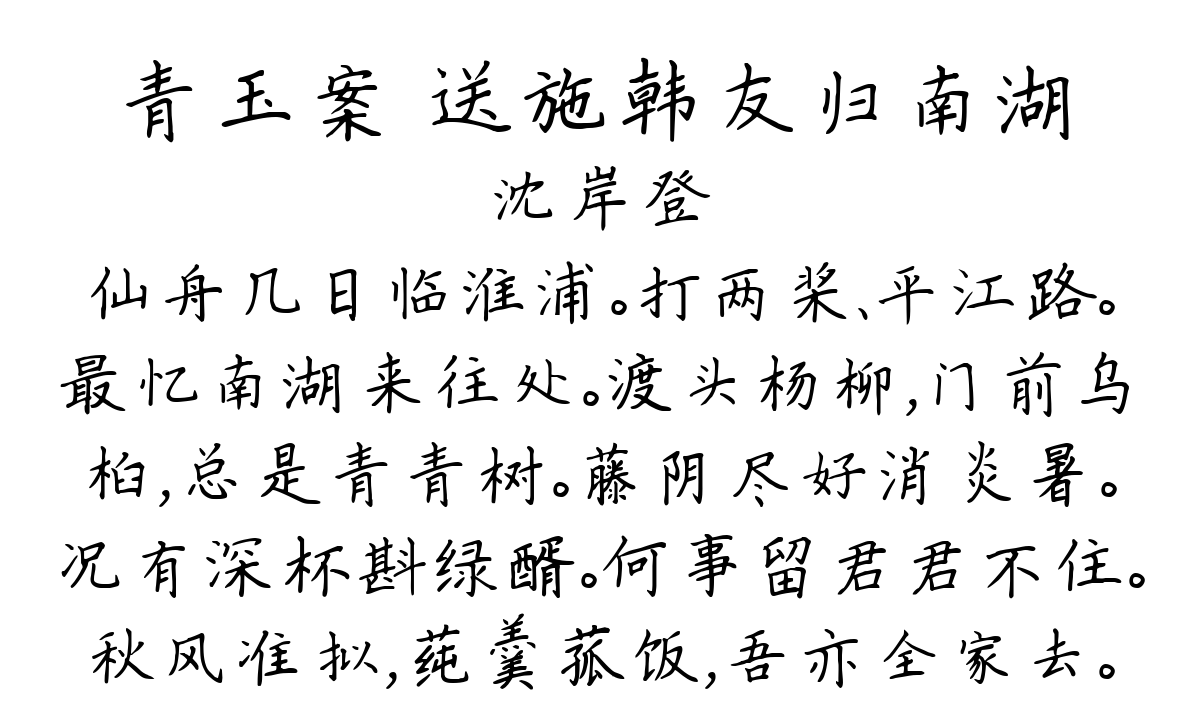 青玉案 送施韩友归南湖
沈岸登
仙舟几日临淮浦。打两桨、平江路。
最忆南湖来往处。渡头杨柳,门前乌
桕,总是青青树。藤阴尽好消炎暑。
况有深杯斟绿醑。何事留君君不住。
秋风准拟,莼羹菰饭,吾亦全家去。